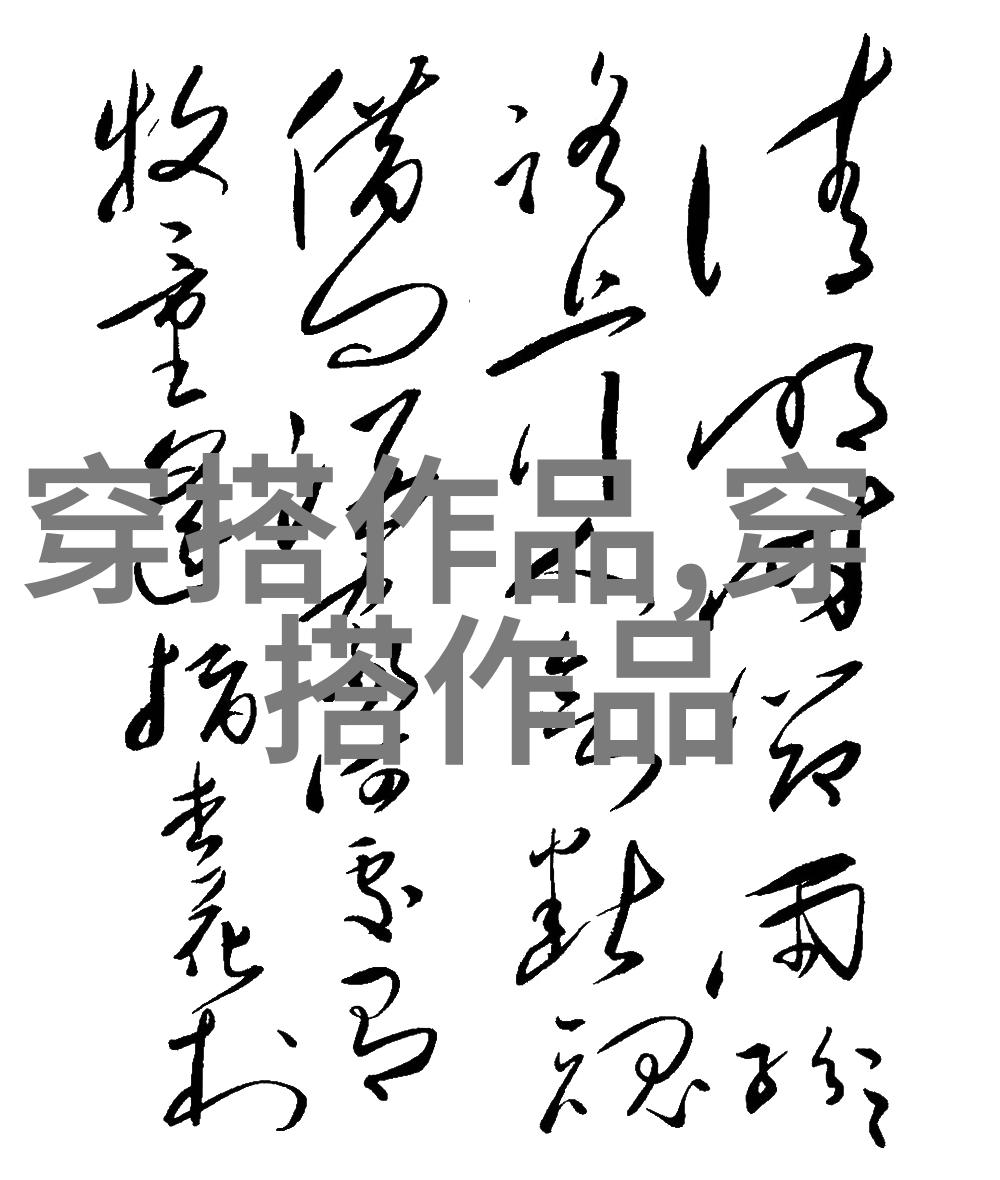 清明時節雨紛紛
路上行人欲斷魂
借問酒家何處有
牧童遥指杏花村
穿搭作品,穿
搭作品